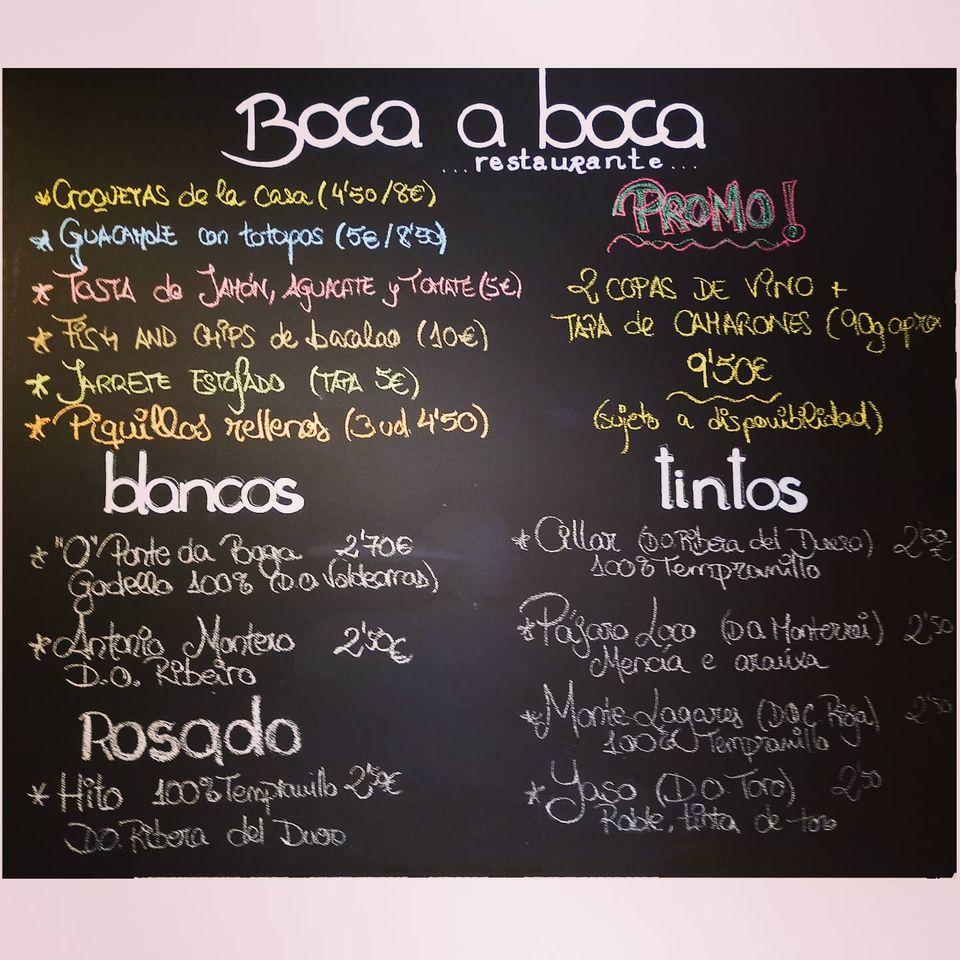 Boca a boca
...restaurante...
* CROQUETAS de la casa (4'50/8€)
* GUACAMOLE con totopos (5€/8'50)
* TOSTA de JAMÓN, AGUACATE y TOMATE (5€)
* FISH AND CHIPS de bacalao (10€)
* JARRETE ESTOFADO (TAPA 5€)
* Piquillos rellenos (3 ud 4'50)
PROMO!
2 COPAS DE VINO +
TAPA de CAMARONES (90g aprox
9'50€
(sujeto a disponibilidad)
blancos
* "O" Ponte da Boga 2'70€
Godello 100% (D.O Valdeorras)
* Antonio Montero 2'50€
D.O. Ribeiro
Rosado
* Hito 100% Tempranillo 2'50€
D.O. Ribera del Duero
tintos
* Cillar (D.O Ribera del Duero) 2'60€
100% Tempranillo
* Pájaro Loco (D.O Monterrei) 2'50
Mencía e araúxa
* Monte Lagares (D.O.C Rioja) 2'50
100% Tempranillo
* Yaso (D.O. Toro) 2'50
Roble, tinta de toro